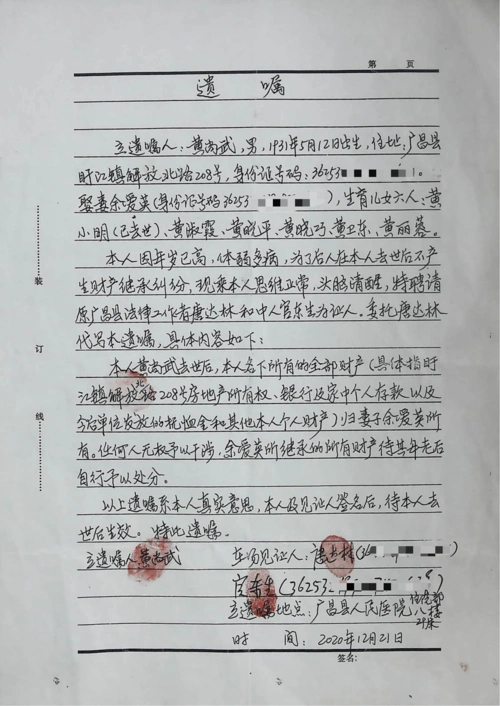 第 页
遗 嘱
立遗嘱人：黄尚武，男，1931年5月12日出生，住址：广昌县
盱江镇解放北路208号，身份证号码：36253
娶妻余爱英（身份证号码36253 ），生育儿女六人：黄
小明（已去世）、黄淑霞、黄晓平、黄晓巧、黄卫东、黄丽蓉。
本人因年岁已高，体弱多病，为了后人在本人去世后不产
生财产继承纠纷，现乘本人思维正常，头脑清醒，特聘请
原广昌县法律工作者唐达林和中人官东生为证人。委托唐达林
代写本遗嘱，具体内容如下：
本人黄尚武去世后，本人名下所有的全部财产（具体指盱
江镇解放北路208号房地产所有权、银行及家中个人存款以及
今后单位发放的抚恤金和其他本人个人财产）归妻子余爱英所
有。任何人无权予以干涉，余爱英所继承的所有财产待其年老后
自行予以处分。
以上遗嘱系本人真实意思，本人及见证人签名后，待本人去
世后生效。特此遗嘱。
立遗嘱人黄尚武 在场见证人：唐达林（36 ）
官东生（36253 8）
立遗嘱地点：广昌县人民医院住院部八楼29床
时 间：2020年12月21日
签名：
装
订
线